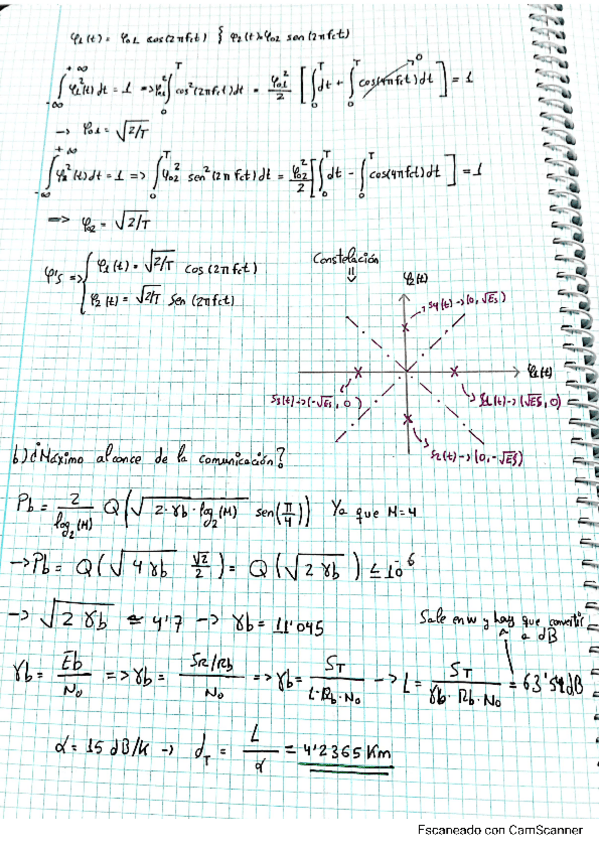 φ1(t) = φ01 cos(2πfct) } φ2(t) = φ02 sen(2πfct)
∫_{-∞}^{+∞} φ1²(t)dt = 1 => φ01² ∫_0^T cos²(2πfct)dt = φ01²/2 [∫_0^T dt + ∫_0^T cos(4πfct)dt →0] = 1
→ φ01 = √2/T
∫_{-∞}^{+∞} φ2²(t)dt = 1 => ∫_0^T φ02² sen²(2πfct)dt = φ02²/2 [∫_0^T dt - ∫_0^T cos(4πfct)dt] = 1
=> φ02 = √2/T
φ's => { φ1(t) = √2/T cos(2πfct)
φ2(t) = √2/T sen(2πfct)
Constelación
⇓
φ2(t)
s4(t)→(0, √Es)
φ1(t)
s3(t)→(-√Es, 0)
s1(t)→(√Es, 0)
s2(t)→(0, -√Es)
b) ¿Máximo alcance de la comunicación?
Pb = 2/log2(M) Q(√2·γb·log2(M) sen(π/4)) Ya que M=4
→ Pb = Q(√4γb √2/2) = Q(√2γb) ≤ 10^-6
→ √2γb ≃ 4'7 → γb = 11'045
Sale en W y hay que convertir a dB
γb = Eb/No => γb = SR/Rb/No => γb = ST/L·Rb·No → L = ST/γb·Rb·No = 63'54dB
α = 15 dB/K → dT = L/α = 4'2365 Km
Escaneado con CamScanner